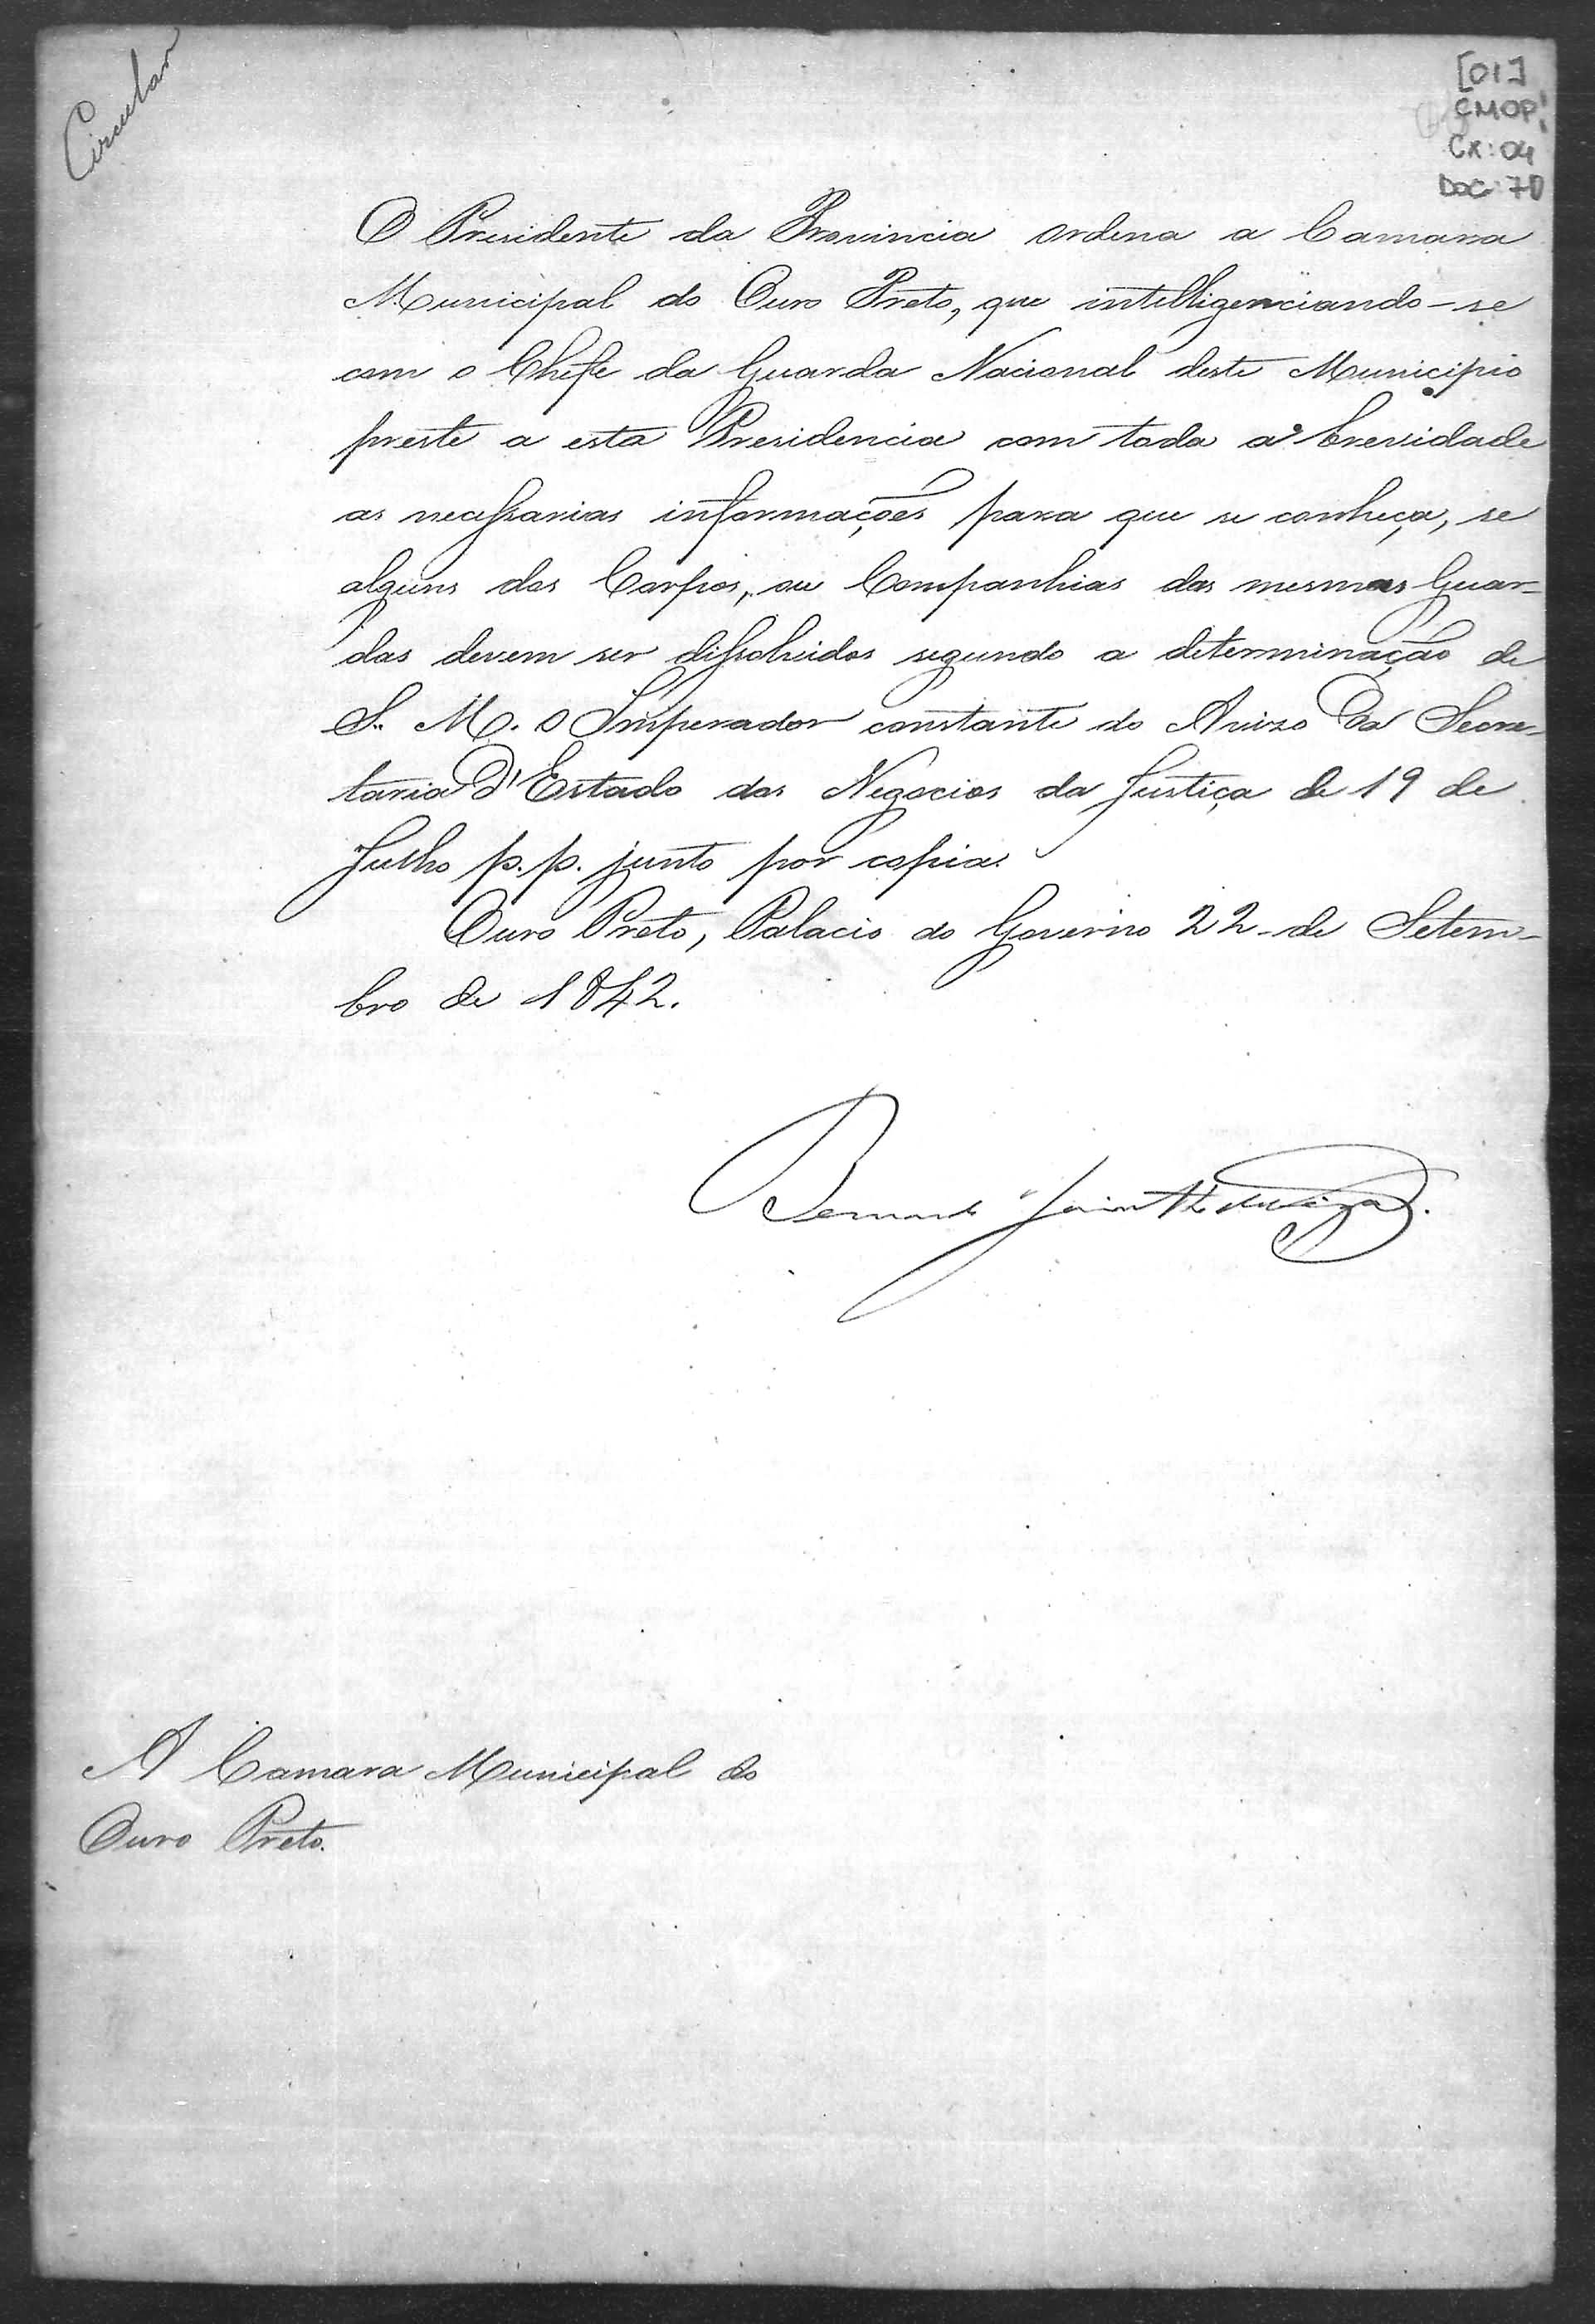 Circular
[01]
CMOP
CX: 04
DOC: 70
O Presidente da Provincia ordena a Camara
Municipal do Ouro Preto, que intelligenciando-se
com o Chefe da Guarda Nacional deste Municipio
preste a esta Presidencia com toda a brevidade
as necessarias informações para que se conheça, se
alguns dos Corpos, ou Companhias das mesmas Guar-
das devem ser dissolvidos segundo a determinação de
S. M. o Imperador constante do Avizo da Secre-
taria d'Estado dos Negocios da Justiça de 19 de
Julho p. p. junto por copia.
Ouro Preto, Palacio do Governo 22 de Setem-
bro de 1842.
Bernardo Jacintho da Veiga.
A Camara Municipal do
Ouro Preto.